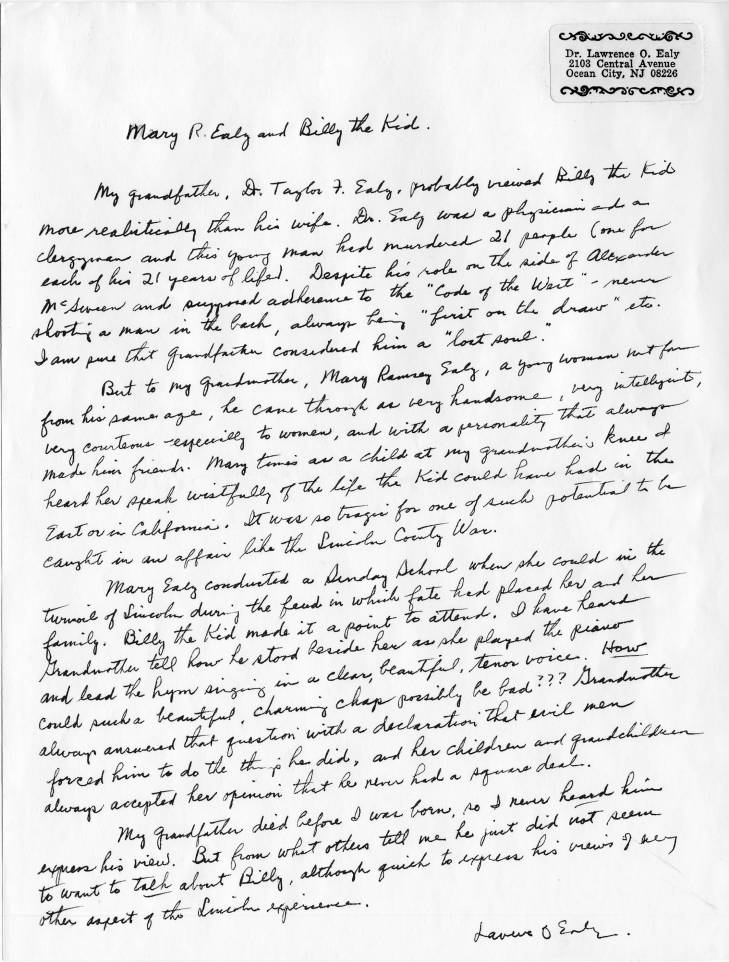 Dr. Lawrence O. Ealy
2103 Central Avenue
Ocean City, NJ 08226
Mary R. Ealy and Billy the Kid.
My grandfather, Dr. Taylor F. Ealy, probably viewed Billy the Kid
more realistically than his wife. Dr. Ealy was a physician and a
clergyman and this young man had murdered 21 people (one for
each of his 21 years of life). Despite his role on the side of Alexander
McSween and supposed adherence to the "Code of the West" - never
shooting a man in the back, always being "first on the draw" etc.
I am sure that Grandfather considered him a "lost soul."
But to my Grandmother, Mary Ramsey Ealy, a young woman not far
from his same age, he came through as very handsome, very intelligent,
very courteous - especially to women, and with a personality that always
made him friends. Many times as a child at my grandmother's knee I
heard her speak wistfully of the life the Kid could have had in the
East or in California. It was so tragic for one of such potential to be
caught in an affair like the Lincoln County War.
Mary Ealy conducted a Sunday School when she could in the
turmoil of Lincoln during the feud in which fate had placed her and her
family. Billy the Kid made it a point to attend. I have heard
Grandmother tell how he stood beside her as she played the piano
and lead the hymn singing in a clear, beautiful, tenor voice. How
could such a beautiful, charming chap possibly be bad??? Grandmother
always answered that question with a declaration that evil men
forced him to do the things he did, and her children and grandchildren
always accepted her opinion that he never had a square deal.
My Grandfather died before I was born, so I never heard him
express his view. But from what others tell me he just did not seem
to want to talk about Billy, although quick to express his views of every
other aspect of the Lincoln experience.
Lawrence O Ealy.